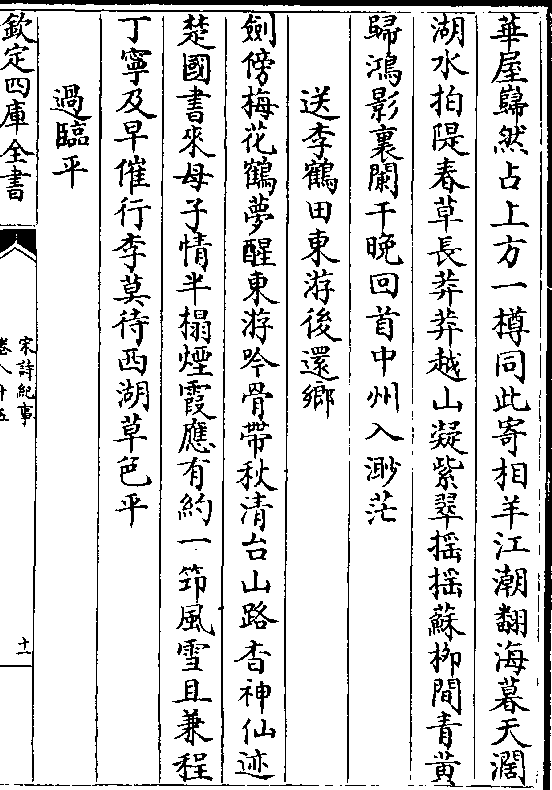 華屋巋然占上方一樽同此寄相羊江潮翻海暮天濶
湖水拍隄春草長莽莽越山凝紫翠揺揺蘇柳間青黄
歸鴻影裏闌干晚回首中州入渺茫
送李鶴田東游後還鄉
劍傍梅花鶴夢醒東游吟骨帶秋清台山路杳神仙迹
楚國書來母子情半榻煙霞應有約一笻風雪且兼程
丁寧及早催行李莫待西湖草色平
過臨平
欽定四庫全書
宋詩紀事
卷八十五
十一